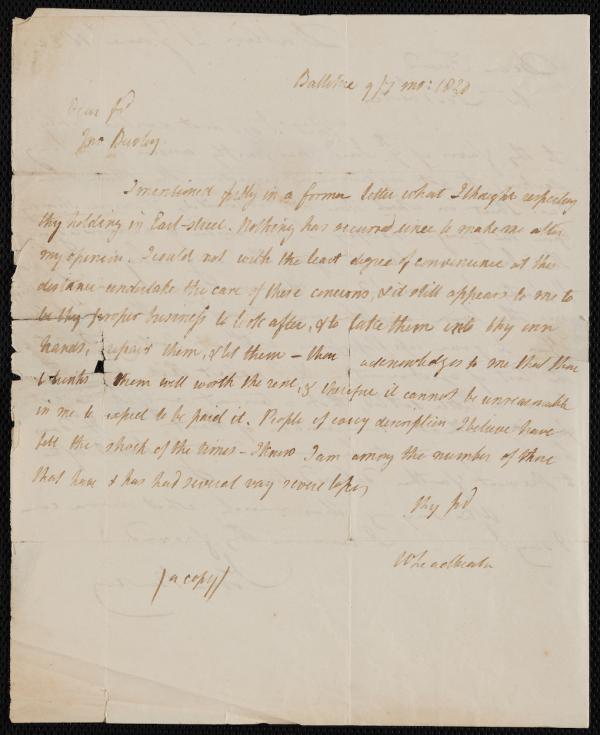 Ballitore 9/7 mo: 1820
Dear fd
Jno Dudley
I mentioned fully in a former letter what I thought respecting
thy holding in Earl-street. Nothing has occurred since to make me alter
my opinion. I could not with the least degree of convenience at this
distance undertake the care of these concerns, & it still appears to me to
be thy proper business to look after, & to take them into thy own
hands, repair them, & let them - thou acknowledges to me that thou
thinks them well worth the rent, & therefore it cannot be unreasonable
in me to expect to be paid it. People of every description I believe have
felt the shock of the times - I know I am among the number of those
that have & has had several very severe losses
thy fd
W Leadbeater
/a copy/